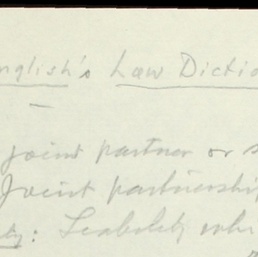 nglish's Law Dictio
joint partner or s
Joint partnership
ty: Liability whi